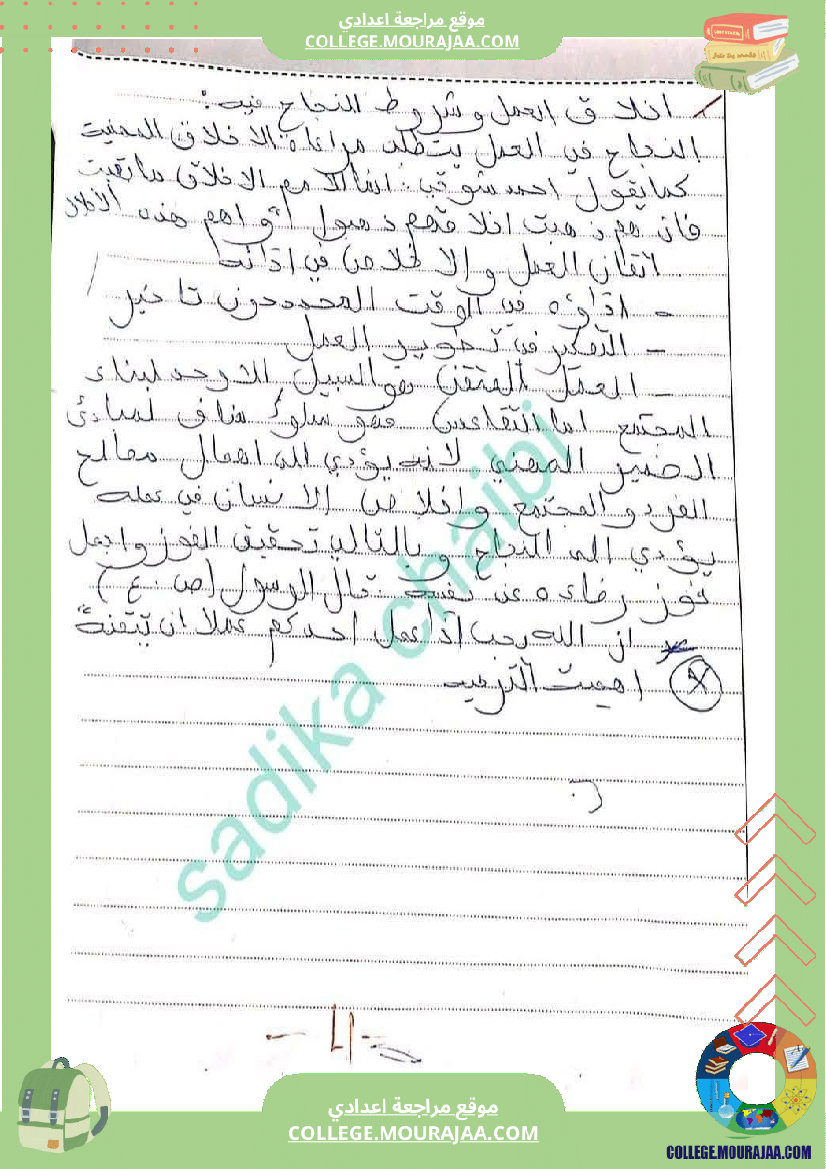 موقع مراجعة اعدادي
COLLEGE.MOURAJAA.COM
اخلاق العمل وشروط النجاح فيه:
النجاح في العمل يتطلب مراعاة الاخلاق المهنية
كما يقول احمد شوقي: انما الامم الاخلاق ما بقيت
فان هم ذهبت اخلاقهم ذهبوا واهم هذه الأخلاق
اتقان العمل والاخلاص في ادائه
- اداؤه في الوقت المحدد دون تاخير
- التفكير في تطوير العمل
- العمل المتقن هو السبيل الاوحد لبناء
المجتمع اما التقاعس فهو سلوك مناف لمبادئ
الضمير المهني لانه يؤدي الى اهمال مصالح
الفرد والمجتمع واخلاص الانسان في عمله
يؤدي الى النجاح وبالتالي تحقيق الفوز واجمل
فوز رضاءه عن نفسه قال الرسول (ص.ع)
ان الله يحب اذا عمل احدكم عملا ان يتقنه"
اهميت الترفيه
sadika chaibi
موقع مراجعة اعدادي
COLLEGE.MOURAJAA.COM
COLLEGE.MOURAJAA.COM